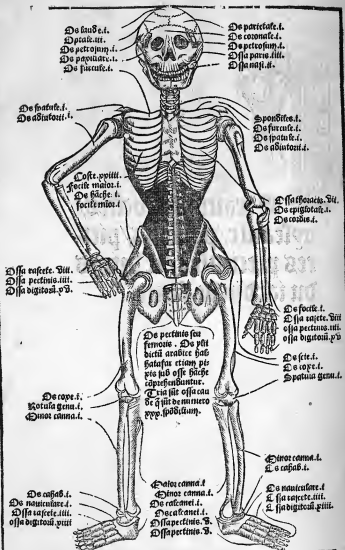 Os laude.i.
Optale.iii.
Os petrosum.i.
Os paxillare.i.
Os furcule.i.
Os parietale.i.
Os coronale.i.
Os petrosum.i.
Ossa paris.iiii.
Ossa nasi.ii.
Os spatule.i.
Os adiutorii.i.
Spondiles.i.
Os furcule.i.
Os spatule.i.
Os adiutorii.i.
Coste.xxiiii.
Focile maior.i.
Os hãche.i.
focile mior.i.
Ossa thoracis.vii.
Os epiglotale.i.
Os cordis.i.
Ossa rascete.viii.
Ossa pectinis.iiii.
Ossa digitorũ.xv.
Os focile.i.
Ossa rascete.viii
ossa pectinis.iiii
ossa digitorũ.xv
Os pectinis seu
femoris. Os pixi
dictũ arabice hah
hatafar etiam pi
xis sub osse hãche
cõprehenduntur.
Tria sũt ossa cau
de q̃ sũt de numero
xxx. spõdilium.
Os scie.i.
Os coxe.i.
Spatula genu.i.
Os coxe.i.
Rotula genu.i.
Minor canna.i.
Minor canna.i.
Os cahab.i.
Maior canna.i
Minor canna.i.
Os calcanei.i.
Os calcanei.i.
Ossa pectinis.v.
Ossa pectinis.v.
Os cahab.i.
Os naviculare.i
Ossa rascete.iiii.
ossa digitorũ.xiiii
Os naviculare.i
Ossa rascete.iiii.
Ossa digitorũ.xiiii.